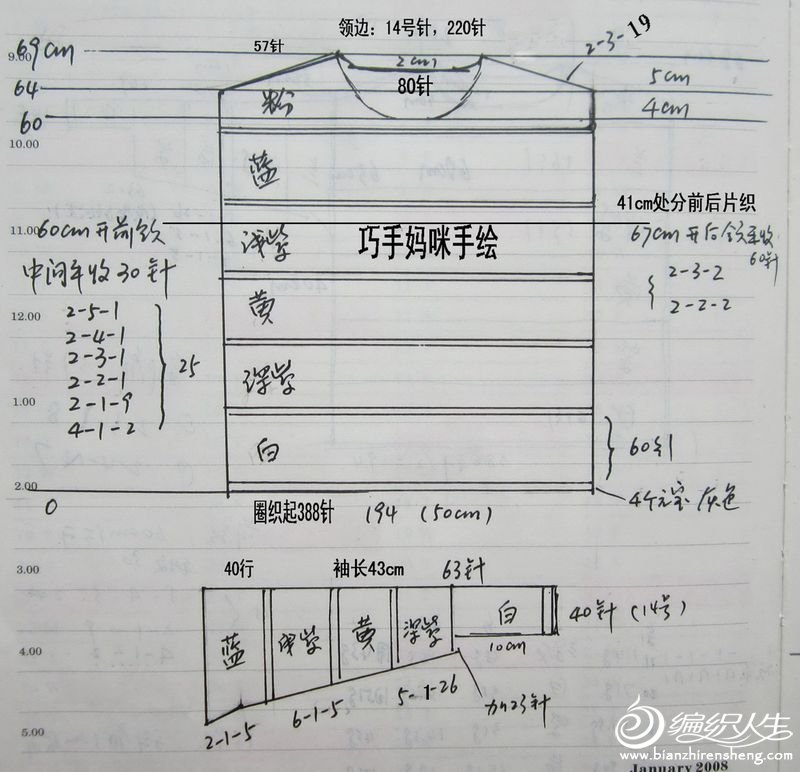 领边：14号针，220针
69cm
57针
2-3-19
9.00
2cm
64
80针
5cm
粉
4cm
60
10.00
蓝
41cm处分前后片织
60cm开前领
11.00
浅紫
巧手妈咪手绘
67cm开后领平收
60针
中间平收30针
2-3-2
2-2-2
黄
2-5-1
12.00
2-4-1
2-3-1
25
2-2-1
深紫
2-1-9
1.00
4-1-2
白
60行
2.00
0
圈织起388针
194 (50cm)
4个元宝 灰色
3.00
40行
袖长43cm
63针
白
40针 (14号)
蓝
浅紫
黄
深紫
10cm
4.00
5-1-26
加23针
6-1-5
2-1-5
5.00
编织人生
www.bianzhirensheng.com
January 2008